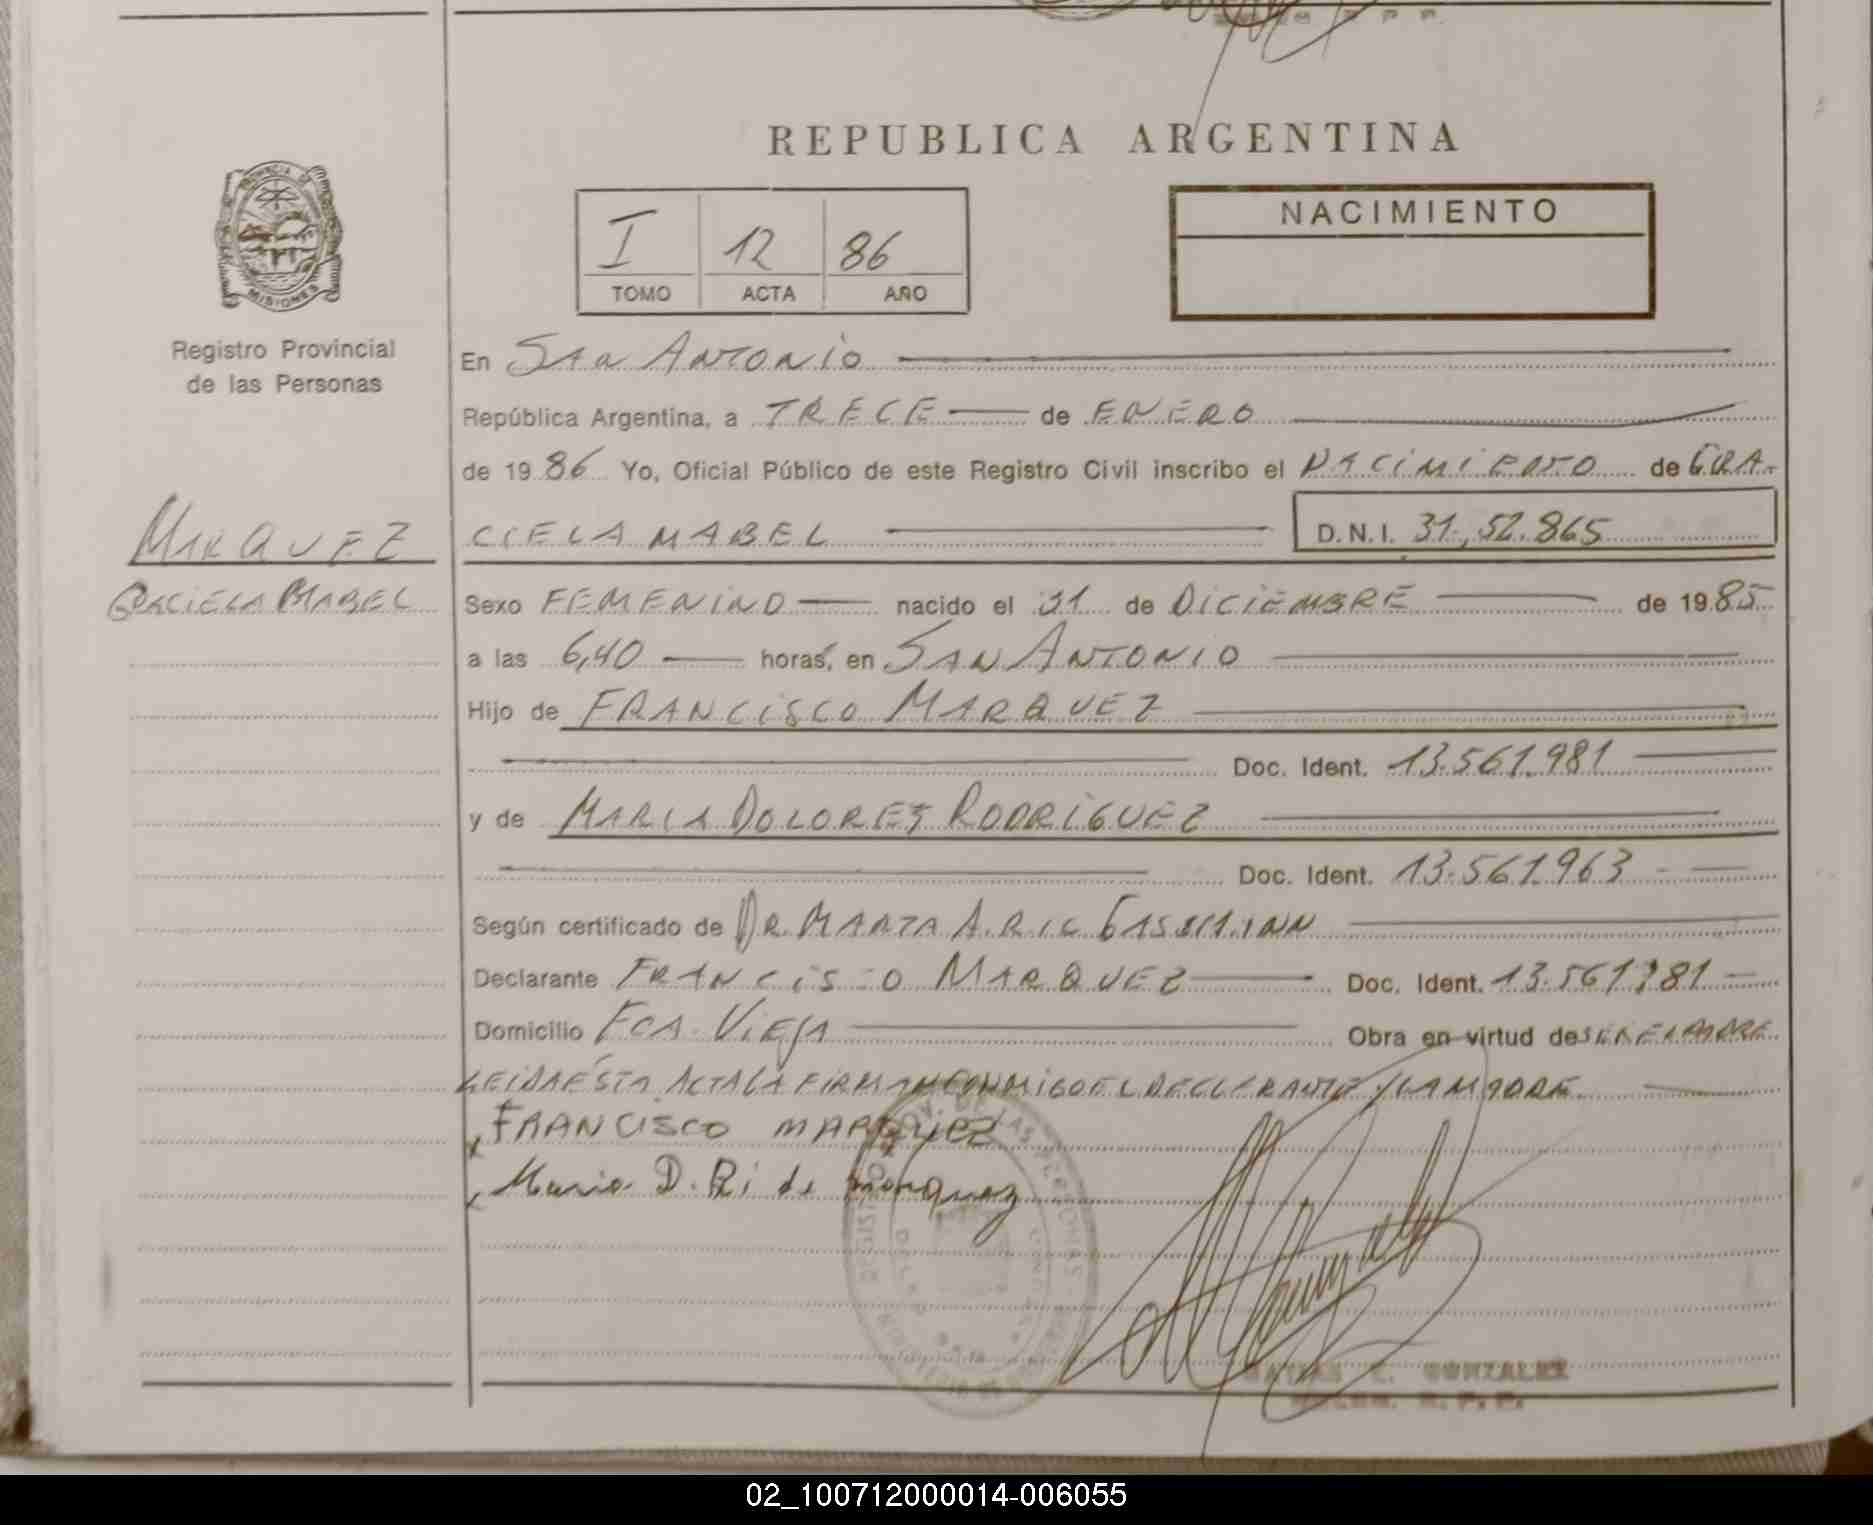 REPUBLICA ARGENTINA
PROVINCIA DE
MISIONES
I 12 86
TOMO ACTA AÑO
NACIMIENTO
Registro Provincial
de las Personas
En San Antonio
República Argentina, a TRECE de ENERO
de 19 86 Yo, Oficial Público de este Registro Civil inscribo el NACIMIENTO de GRA-
MARQUEZ
CIELA MABEL D.N.I.
GRACIELA MABEL
Sexo FEMENINO nacido el 31 de DICIEMBRE de 19 85
a las 6,40 horas, en SAN ANTONIO
Hijo de FRANCISCO MARQUEZ
Doc. Ident. 13.561.981
y de MARIA DOLORES RODRIGUEZ
Doc. Ident. 13.561.963
Según certificado de DR. MARTA A.
Declarante FRANCISCO MARQUEZ Doc. Ident. 13.561.981
Domicilio FCA. VIEJA Obra en virtud de SER EL PADRE
LEIDA ESTA ACTA LA FIRMAN CONMIGO EL DECLARANTE Y LA MADRE
FRANCISCO MARQUEZ
Maria D. Ri de Marquez
GONZALEZ
R. P. P.
02_100712000014-006055